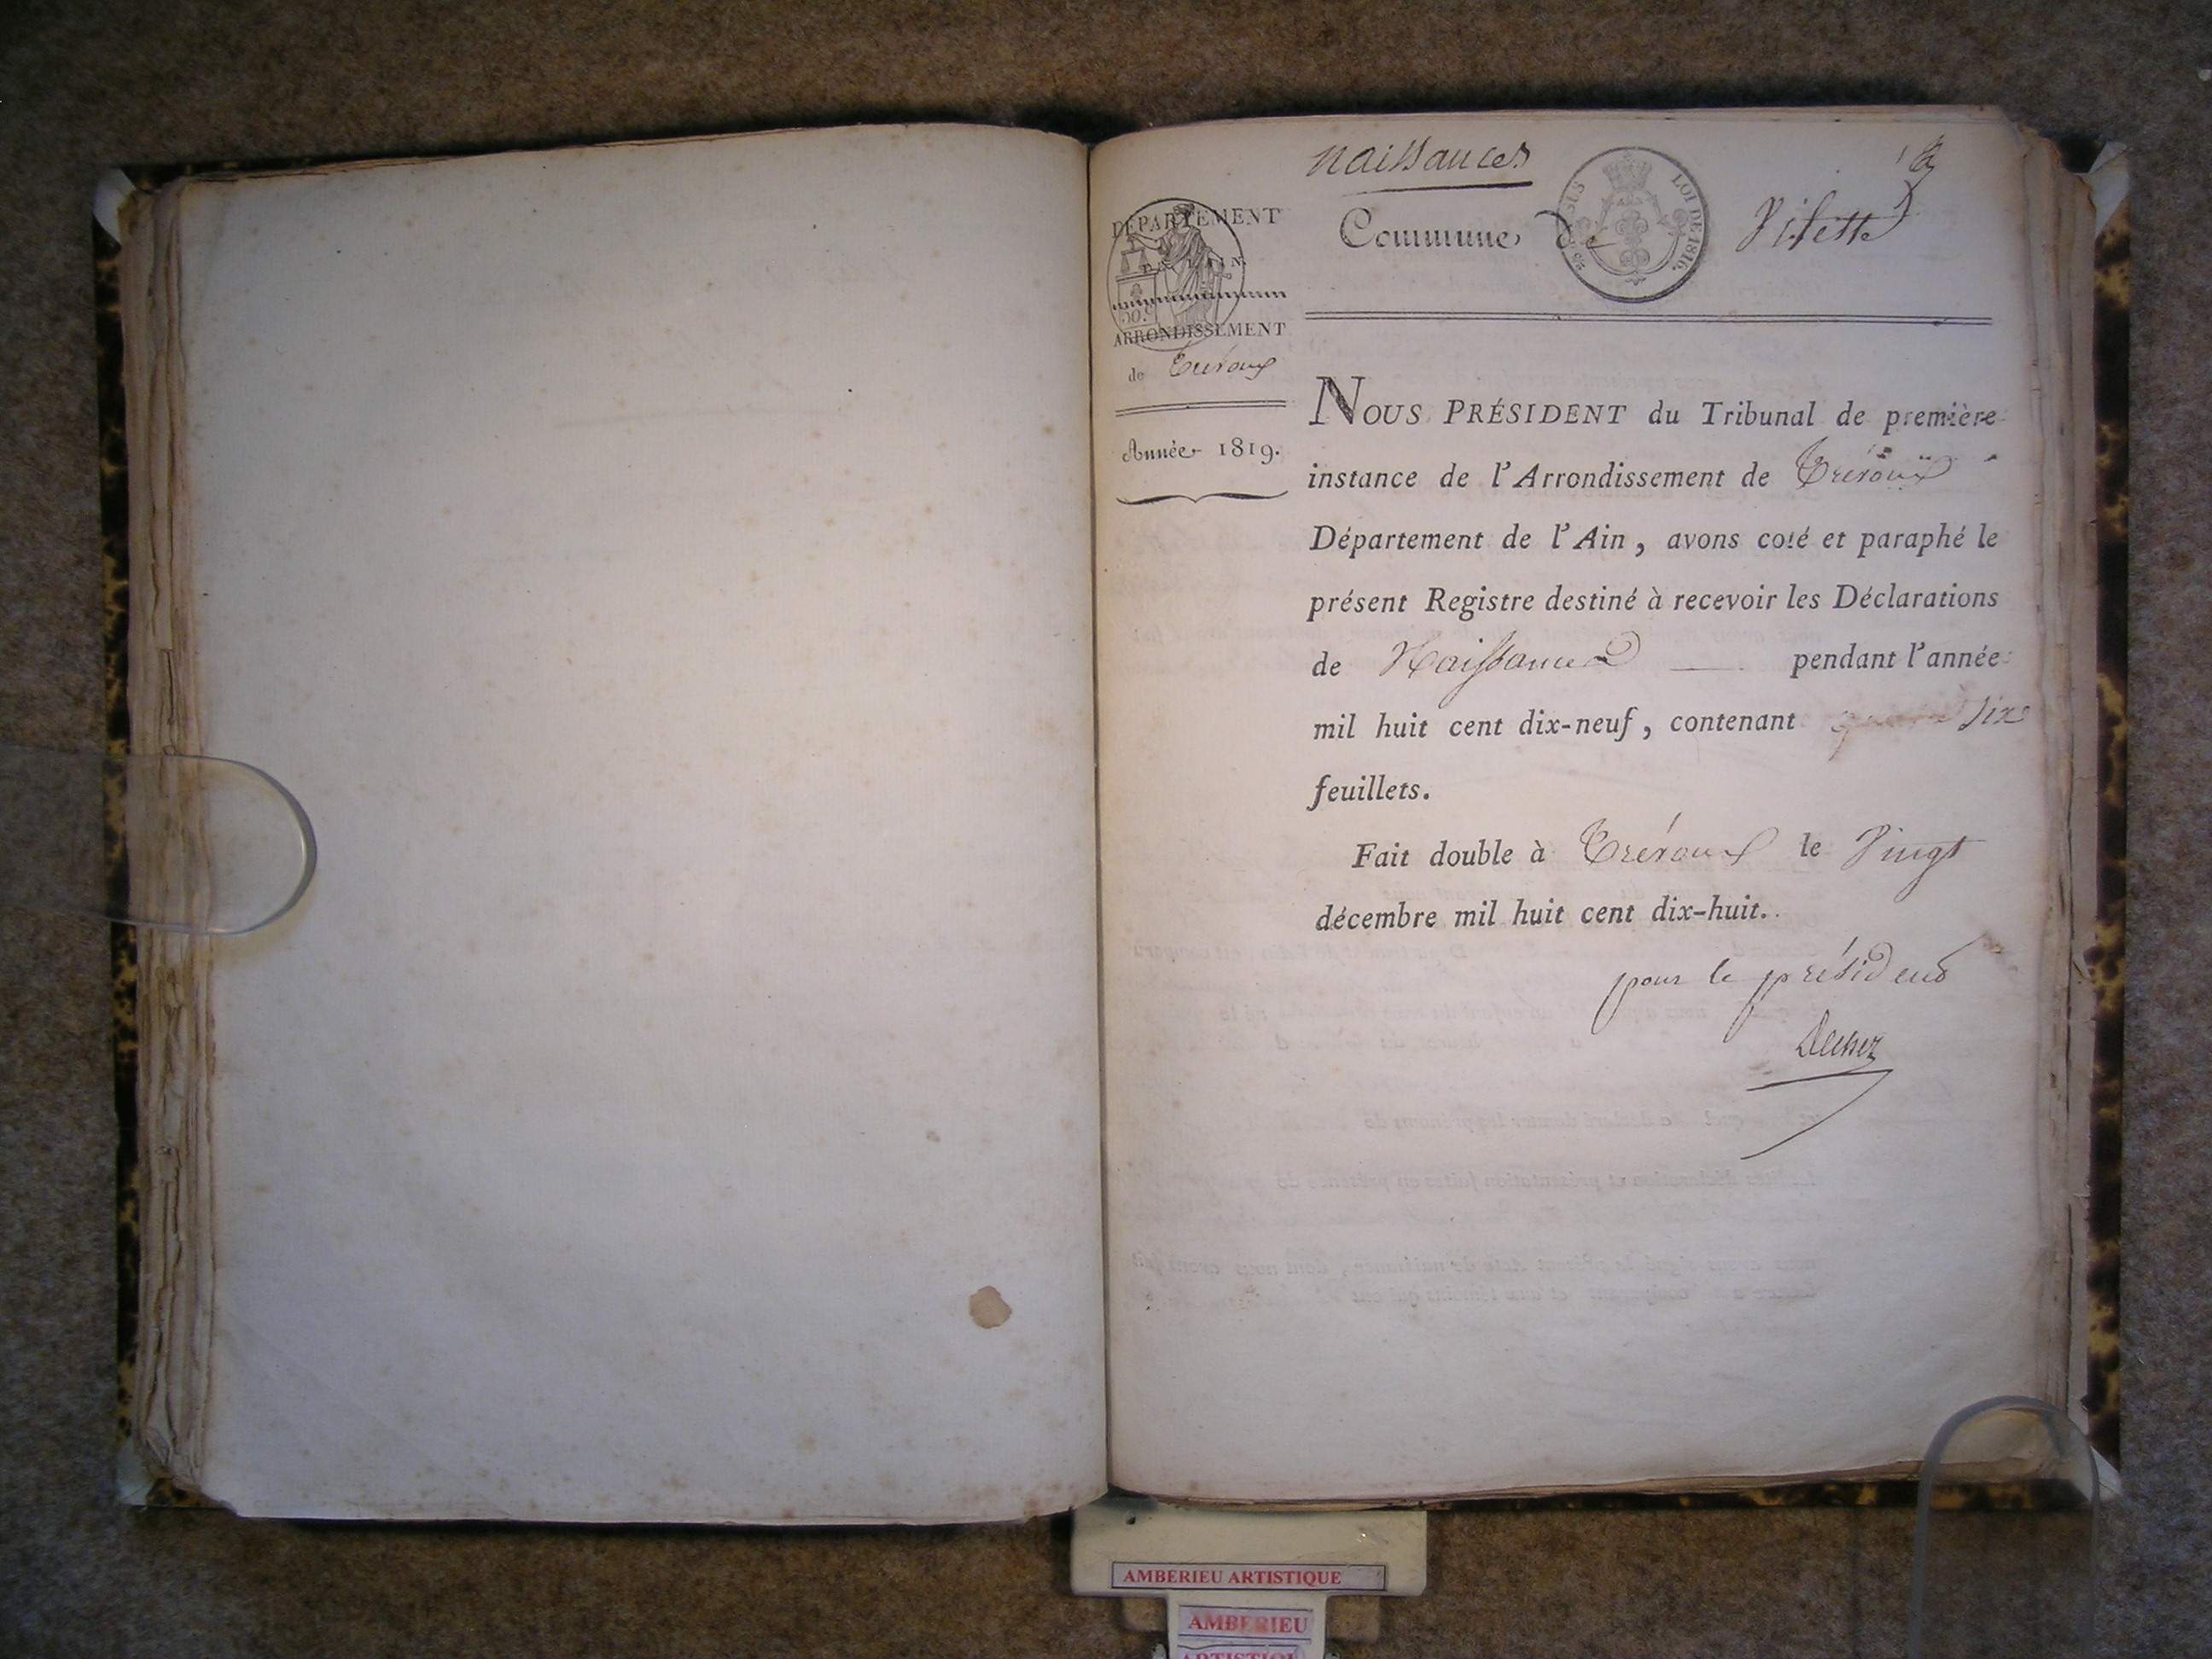 naissances
Commune de Vilette
DÉPARTEMENT
DE L'AIN.
ARRONDISSEMENT
de Trévoux
Année 1819.
EN SUS
LOI DE 1816.
50 c
NOUS PRÉSIDENT du Tribunal de première
instance de l'Arrondissement de Trévoux
Département de l'Ain, avons coté et paraphé le
présent Registre destiné à recevoir les Déclarations
de Naissances — pendant l'année
mil huit cent dix-neuf, contenant six
feuillets.
Fait double à Trévoux le Vingt
décembre mil huit cent dix-huit.
pour le président
AMBERIEU ARTISTIQUE
AMBERIEU
ARTISTIQUE